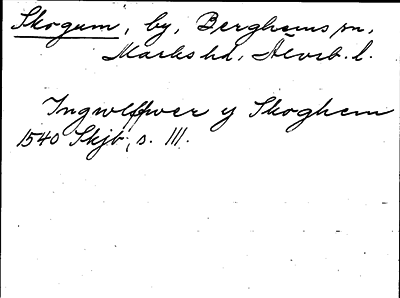 Skogum, by, Berghems sn,
Marks hd, Älvsb. l.
Ingwelffwer y Skoghem
1540 Skjb, s. 111.